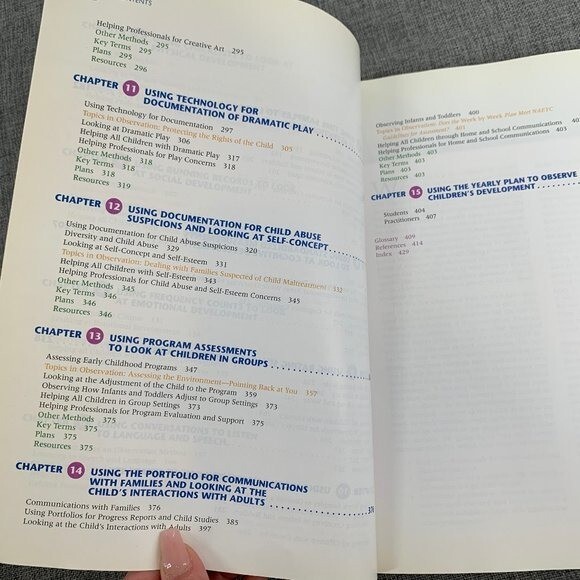 CONTENTS
Helping Professionals for Creative Art 295
Other Methods 295
Key Terms 295
Plans 295
Resources 296
CHAPTER 11 USING TECHNOLOGY FOR
DOCUMENTATION OF DRAMATIC PLAY
Using Technology for Documentation 297
Topics in Observation: Protecting the Rights of the Child 305
Looking at Dramatic Play 306
Helping All Children with Dramatic Play 317
Helping Professionals for Play Concerns 318
Other Methods 318
Key Terms 318
Plans 318
Resources 319
CHAPTER 12 USING DOCUMENTATION FOR CHILD ABUSE
SUSPICIONS AND LOOKING AT SELF-CONCEPT
Using Documentation for Child Abuse Suspicions 320
Diversity and Child Abuse 329
Looking at Self-Concept and Self-Esteem 331
Topics in Observation: Dealing with Families Suspected of Child Maltreatment 332
Helping All Children with Self-Esteem 343
Helping Professionals for Child Abuse and Self-Esteem Concerns 345
Other Methods 345
Key Terms 346
Plans 346
Resources 346
CHAPTER 13 USING PROGRAM ASSESSMENTS
TO LOOK AT CHILDREN IN GROUPS
Assessing Early Childhood Programs 347
Topics in Observation: Assessing the Environment—Pointing Back at You 357
Looking at the Adjustment of the Child to the Program 359
Observing How Infants and Toddlers Adjust to Group Settings 373
Helping All Children in Group Settings 373
Helping Professionals for Program Evaluation and Support 375
Other Methods 375
Key Terms 375
Plans 375
Resources 375
CHAPTER 14 USING THE PORTFOLIO FOR COMMUNICATIONS
WITH FAMILIES AND LOOKING AT THE
CHILD'S INTERACTIONS WITH ADULTS 376
Communications with Families 376
Using Portfolios for Progress Reports and Child Studies 385
Looking at the Child's Interactions with Adults 397
Observing Infants and Toddlers 400
Topics in Observation: Does the Week by Week Plan Meet NAEYC
Guidelines for Assessment? 401
Helping All Children through Home and School Communications 403
Helping Professionals for Home and School Communications 403
Other Methods 403
Key Terms 403
Plans 403
Resources 403
CHAPTER 15 USING THE YEARLY PLAN TO OBSERVE
CHILDREN'S DEVELOPMENT
Students 404
Practitioners 407
Glossary 409
References 414
Index 429